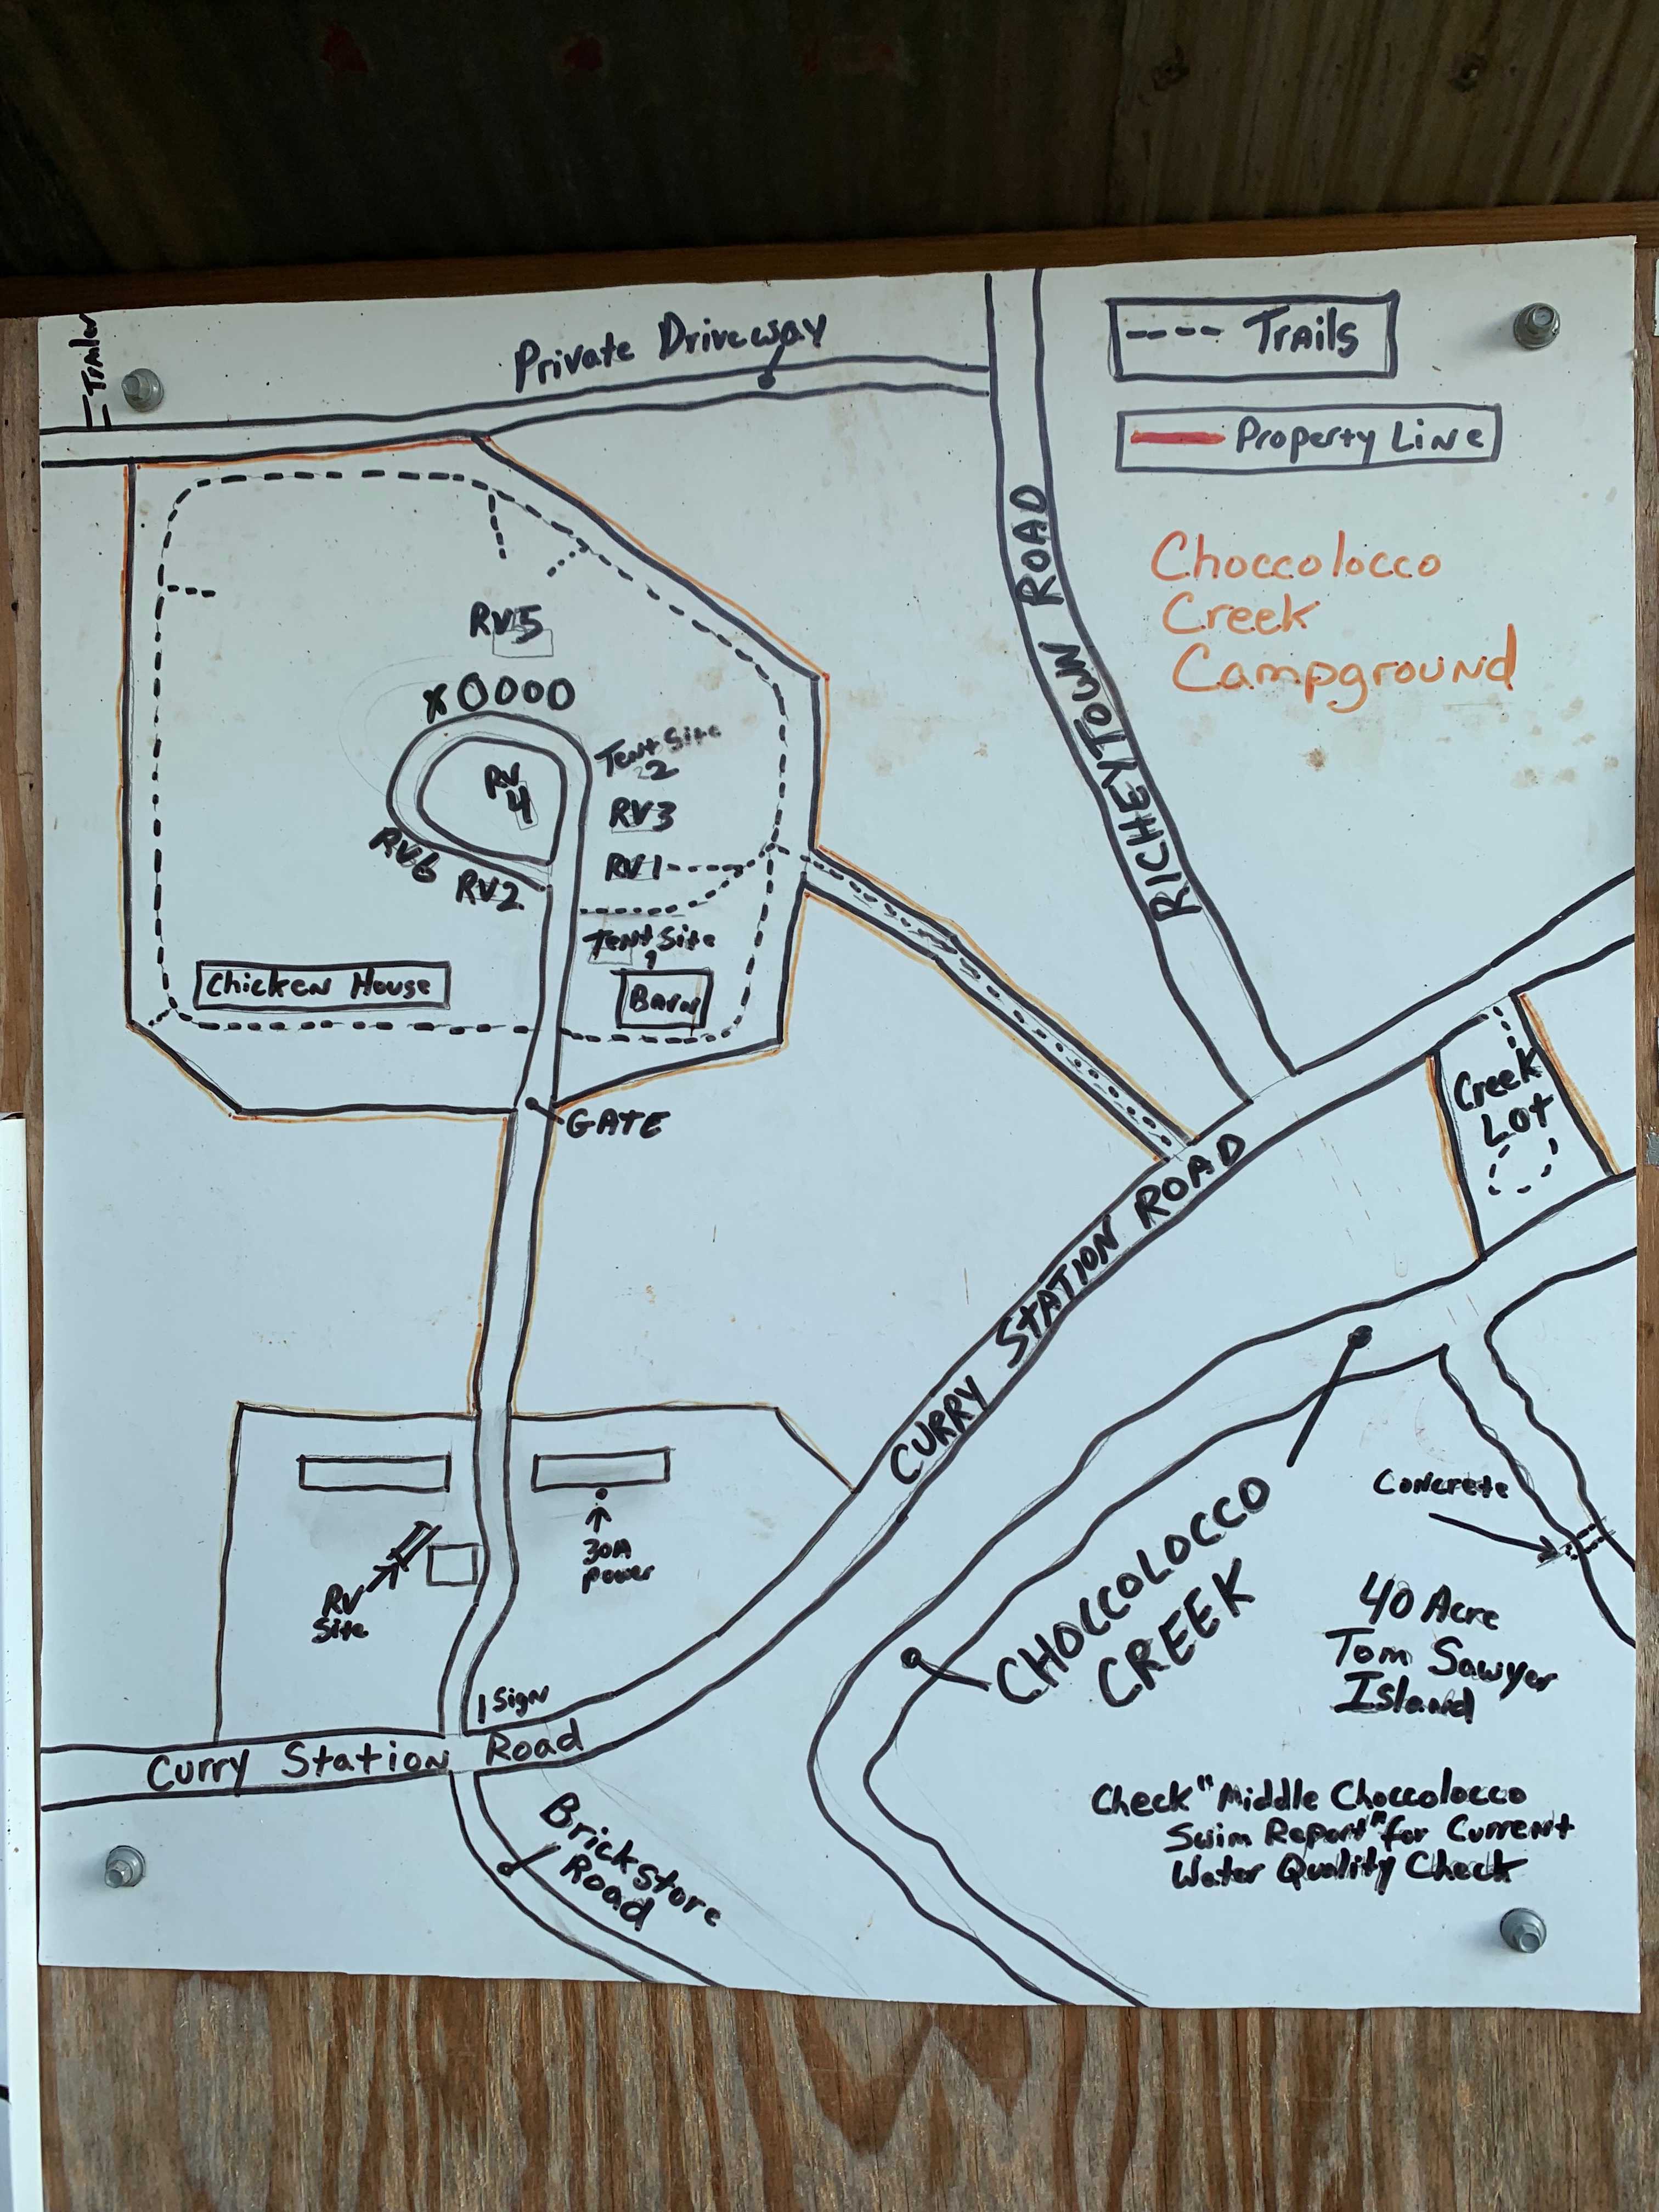 Trailer
Private Driveway
---- Trails
Property Line
Choccolocco
Creek
Campground
RICHEYTOWN ROAD
RV5
X0000
RV
4
Tent Site
2
RV3
RV1
RV6
RV2
Tent Site
1
Chicken House
Barn
GATE
Creek
Lot
CURRY STATION ROAD
30A
Power
RV
Site
Sign
Curry Station Road
Brickstore
Road
CHOCCOLOCCO
CREEK
Concrete
40 Acre
Tom Sawyer
Island
Check "Middle Choccolocco
Swim Report" for Current
Water Quality Check